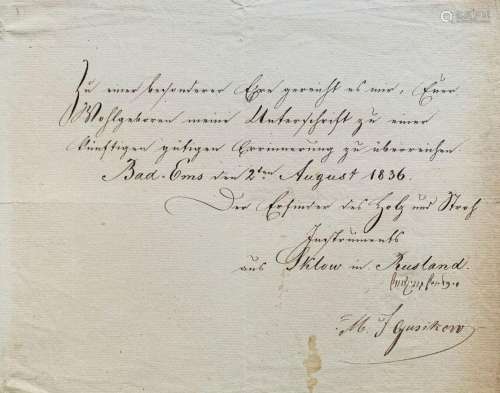 Zu einer besonderer Ehre gereicht es mir, Euer
Wohlgeboren meine Unterschrift zu einer
künftigen gütigen Erinnerung zu überreichen
Bad-Ems den 2ten August 1836.
Der Erfinder des Holz und Stroh
Instruments
aus Sklow in Rusland.
M. J Gusikow